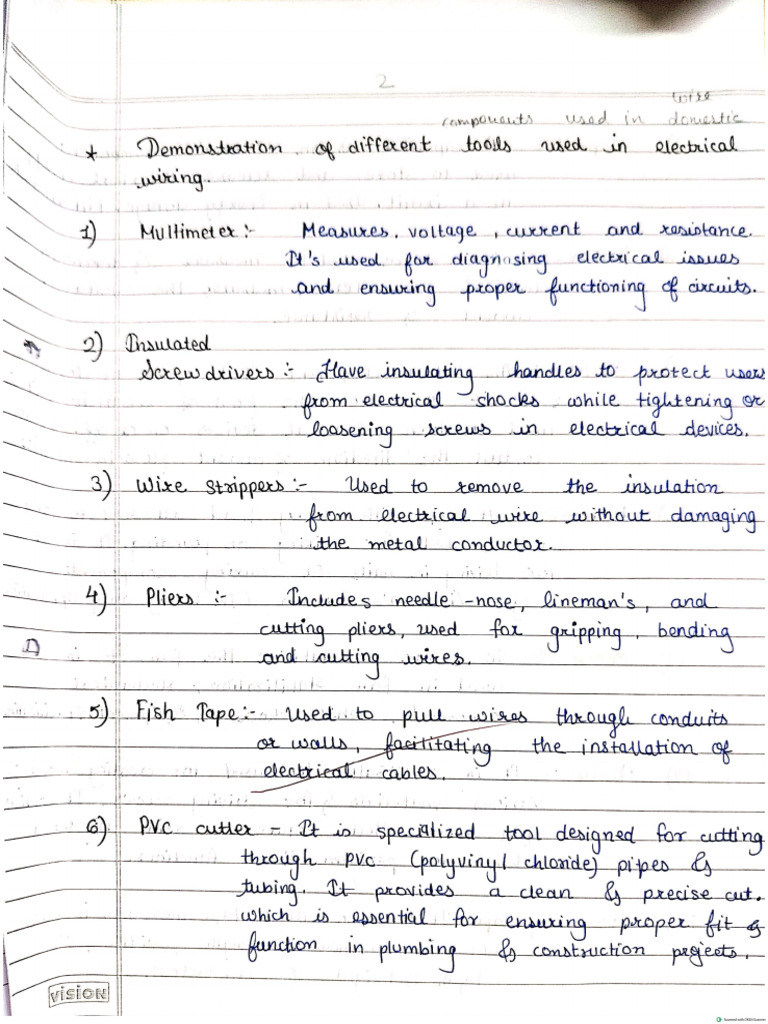 2
wire
components used in domestic
* Demonstration of different tools used in electrical
wiring.
1) Multimeter :- Measures, voltage, current and resistance.
It's used for diagnosing electrical issues
and ensuring proper functioning of circuits.
2) Insulated
Screwdrivers :- Have insulating handles to protect users
from electrical shocks while tightening or
loosening screws in electrical devices.
3) Wire Strippers :- Used to remove the insulation
from electrical wire without damaging
the metal conductor.
4) Pliers :- Includes needle-nose, lineman's, and
cutting pliers, used for gripping, bending
and cutting wires.
5) Fish Tape :- Used to pull wires through conduits
or walls, facilitating the installation of
electrical cables.
6) PVC cutter - It is specialized tool designed for cutting
through PVC (polyvinyl chloride) pipes &
tubing. It provides a clean & precise cut.
which is essential for ensuring proper fit &
function in plumbing & construction projects.
vision
Scanned with OKEN Scanner